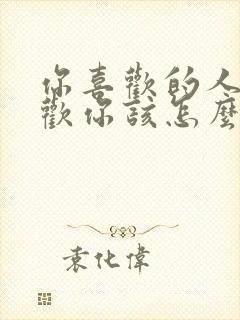 你喜歡的人
歡你該怎麼
袁化偉